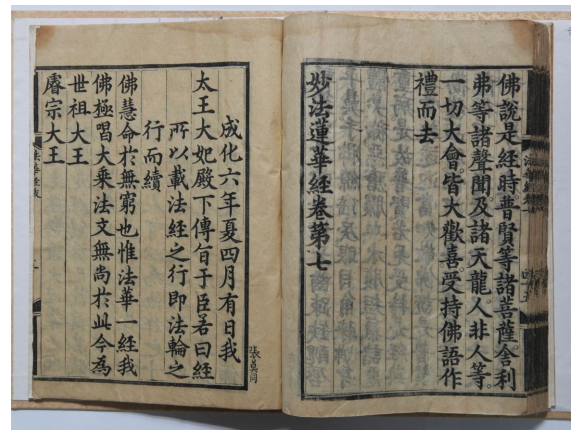 佛說是經時普賢等諸菩薩舍利
弗等諸聲聞及諸天龍人非人等
一切大會皆大歡喜受持佛語作
禮而去
妙法蓮華經卷第七
成化六年夏四月有日我
太王大妃殿下傳旨于臣若曰經
所以載法經之行即法輪之
行而續
佛慧命於無窮也惟法華一經我
佛極唱大乘法文無尚於此今為
世祖大王
睿宗大王